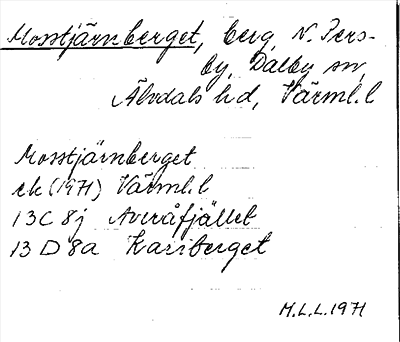 Mosstjärnberget, berg, N. Pers-
by, Dalby sn,
Älvdals hd, Värml.l
Mosstjärnberget
ek (1971) Värml.l
13C 8j Averåfjället
13 D 8a Kariberget
M.L.L.1971